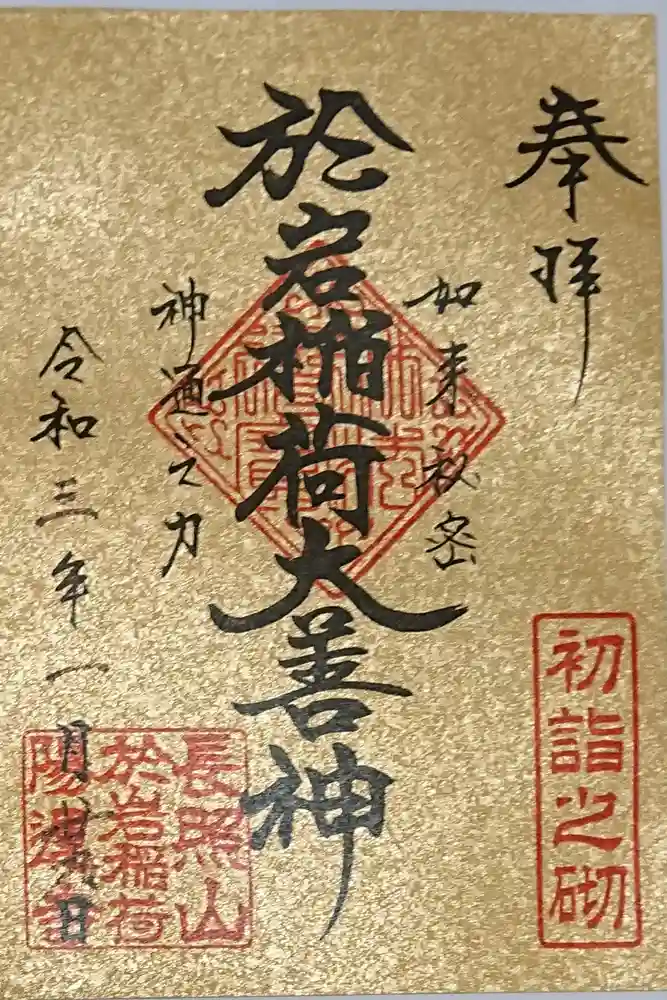 奉拝
如来秘密
於岩稲荷大善神
神通之力
令和三年一月廿九日
初詣之砌
長照山
於岩稲荷
陽運寺